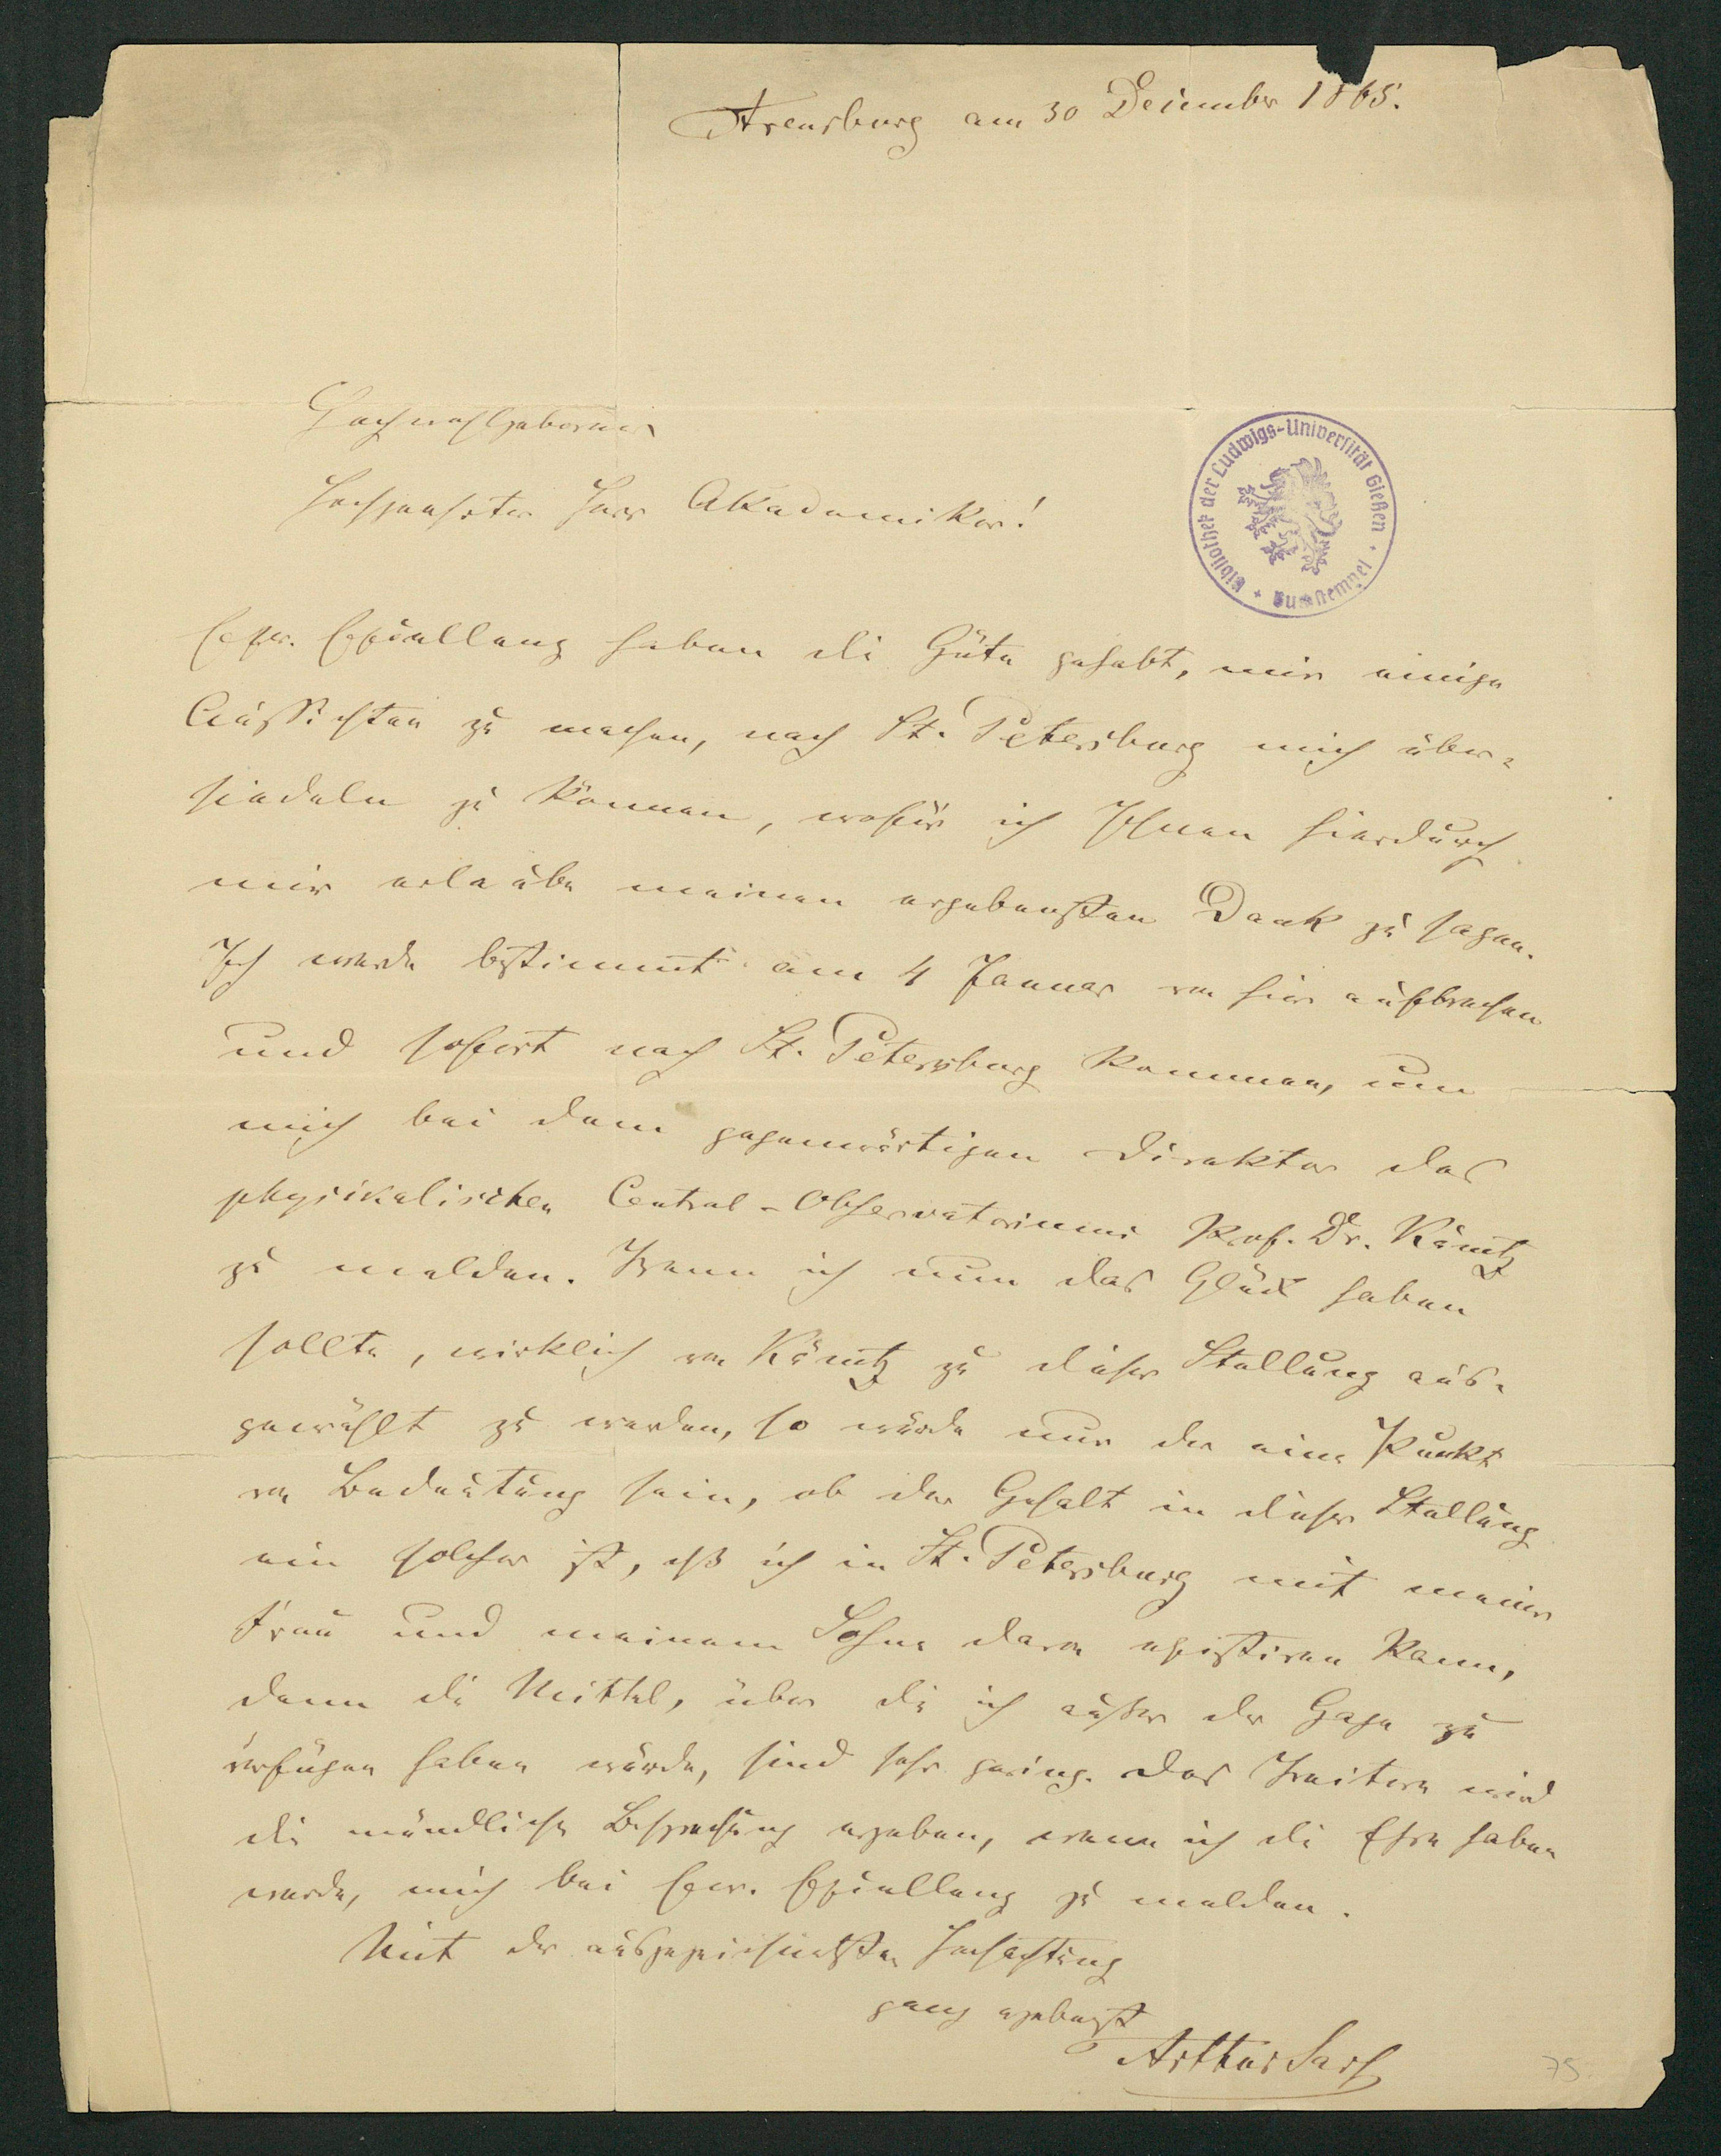 Arensburg am 30 December 1865.
Hochwohlgeborner
Hochgeehrter Herr Akademiker!
Bibliothek der Ludwigs-Universität Gießen
Ew. Excellenz haben die Güte gehabt, mir einige
Aussichten zu machen, nach St. Petersburg mich über-
siedeln zu können, wofür ich Ihnen hierdurch
mir erlaube meinen ergebensten Dank zu sagen.
Ich werde bestimmt am 4 Januar von hier aufbrechen
und sofort nach St. Petersburg kommen, um
mich bei dem gegenwärtigen Direktor des
physikalischen Central-Observatoriums Prof. Dr. Kämtz
zu melden. Wenn ich nun das Glück haben
sollte, wirklich von Kämtz zu dieser Stellung aus-
gewählt zu werden, so würde nur der eine Punkt
von Bedeutung sein, ob der Gehalt in dieser Stellung
ein solcher ist, daß ich in St. Petersburg mit meiner
Frau und meinem Sohne davon existiren kann,
denn die Mittel, über die ich außer der Gage zu
verfügen haben würde, sind sehr gering. Das Weitere wird
die mündliche Besprechung ergeben, wenn ich die Ehre haben
werde, mich bei Ew. Excellenz zu melden.
Mit der ausgezeichnetsten Hochachtung
ganz ergebenst
Arthur
75.